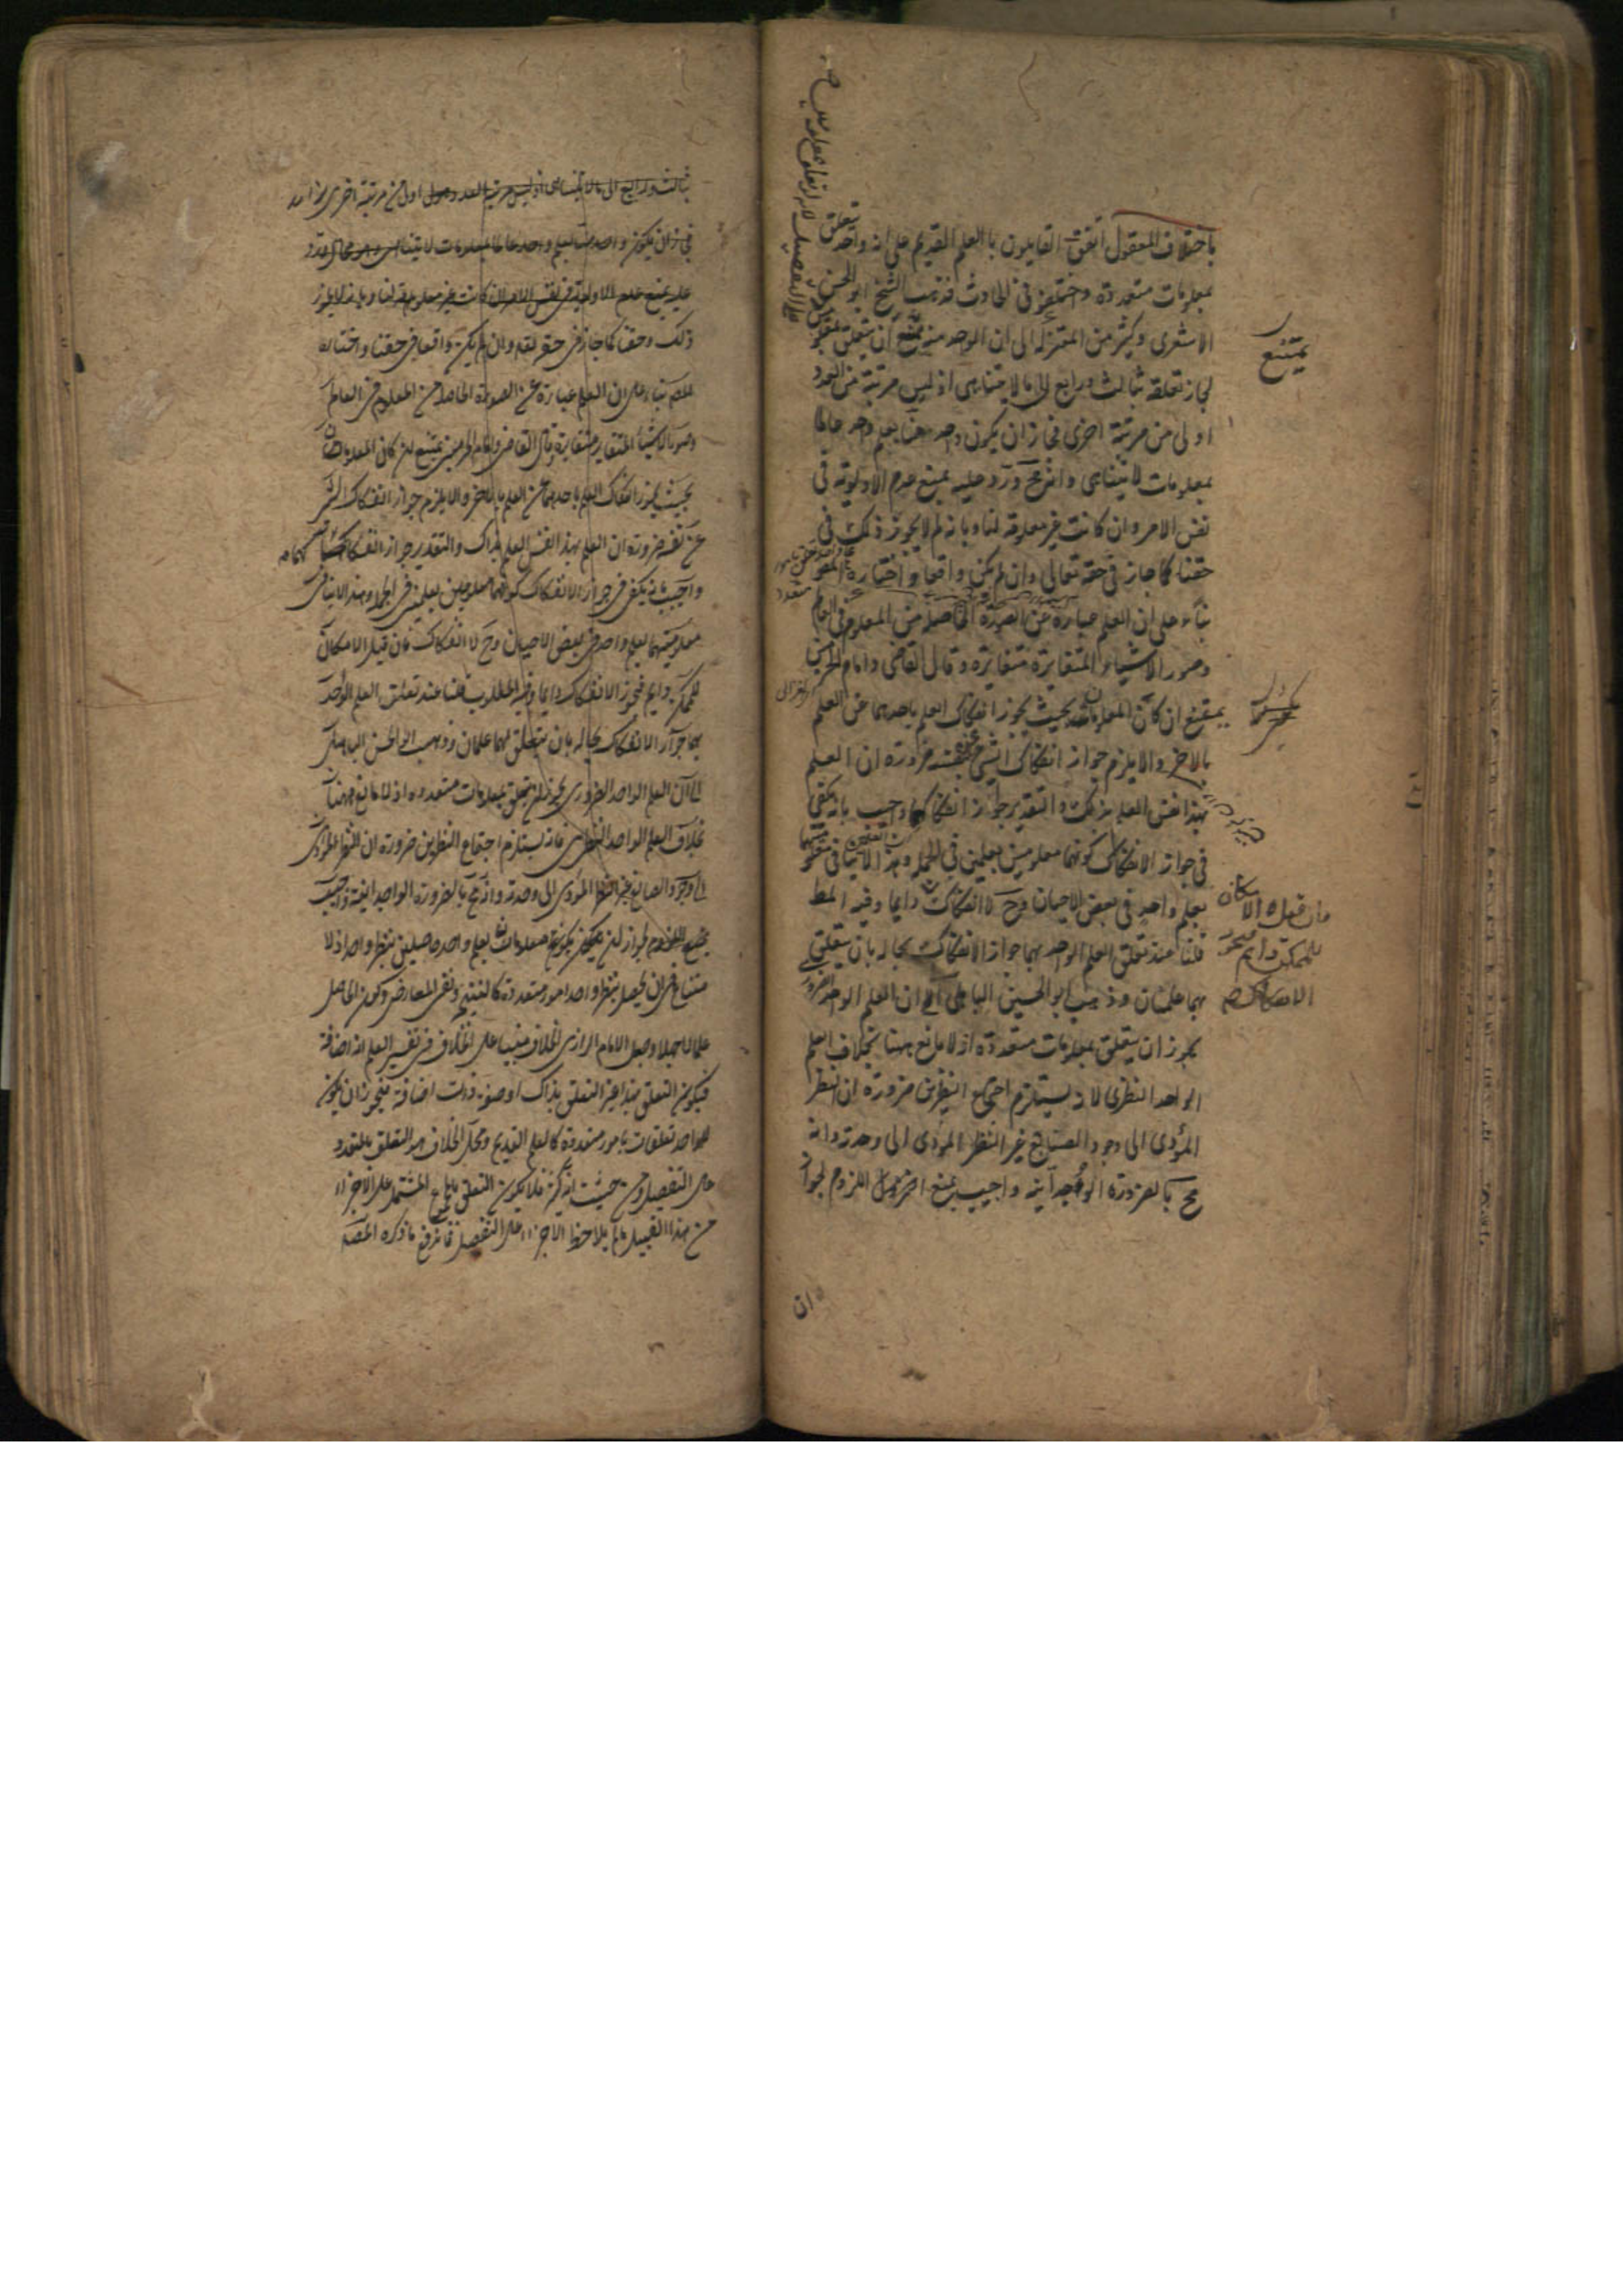 باختلاف المعقول اتفق القايلون باالعلم القديم على انه واحد تعلق
بمعلومات متعددة واختلفوا فى الحادث فذهب الشيخ ابو الحسن
الاشعرى وكثير من المعتزلة الى ان الواحد منه يمتنع ان يتعلق
لجاز تعلقه بثالث ورابع الى مالا يتناهى اذ ليس مرتبة من العدد
اولى من مرتبة اخرى فجاز ان يكون واحد منا بعلم واحد عالما
بمعلومات لا يتناهى وانه مح ورد عليه بمنع عدم الاولوية فى
نفس الامر وان كانت غير معلومة لنا وبانه لم لا يجوز ذلك فى
حقنا كما جاز فى حقه تعالى وان لم يكن واقعا واختاره المص
بناء على ان العلم عبارة عن الصورة الحاصلة من المعلوم فى العالم
وصور الاشياء المتغايرة متغايرة وقال القاضى وامام الحرمين
يمتنع ان كان المعلومان بحيث يجوز انفكاك العلم باحدهما عن العلم
بالاخر والا يلزم جواز انفكاك الشئ عن نفسه ضرورة ان العلم
بهذا نفس العلم بذلك والتقدير جواز انفكاكهما واجيب بانه يكفى
فى جواز الانفكاك كونهما معلومين بعلمين فى الجملة وهذا لا ينافى
بعلم واحد فى بعض الاحيان وح لا انفكاك دايما وفيه المط
قلنا عند تعلق العلم الواحد بهما جواز الانفكاك بحاله بان يتعلق
بهما علمان وذهب ابو الحسين الباهلى الى ان العلم الواحد الضرورى
يجوز ان يتعلق بمعلومات متعددة اذ لا مانع ههنا بخلاف العلم
الواحد النظرى لانه يستلزم اجتماع النظرين ضرورة ان النظر
المؤدى الى وجود الصانع غير النظر المؤدى الى وحدته وانه
مح بالضرورة الوجدانية واجيب بمنع اللزوم لجواز
يمتنع
فان قيل الامكان
للممكن دايم فيجوز
الانفكاك
على التفصيل
بثالث ورابع الى مالا يتناهى اذ ليس مرتبة العدد اولى من مرتبة اخرى
فجاز ان يكون واحد منا بعلم واحد عالما بمعلومات لا يتناهى وهو محال ورد
عليه بمنع عدم الاولوية فى نفس الامر وان كانت غير معلومة لنا وبانه لا يجوز
ذلك فى حقنا كما جاز فى حقه تعالى وان لم يكن واقعا فى حقنا واختاره
المص بناء على ان العلم عبارة عن الصورة الحاصلة من المعلوم فى العالم
وصور الاشياء المتغايرة متغايرة وقال القاضى وامام الحرمين يمتنع ان كان المعلومان
بحيث يجوز انفكاك العلم باحدهما عن العلم بالاخر والا يلزم جواز انفكاك الشئ
عن نفسه ضرورة ان العلم بهذا نفس العلم بذاك والتقدير جواز انفكاكهما
واجيب بانه يكفى فى جواز الانفكاك كونهما معلومين بعلمين فى الجملة وهذا لا ينافى
معلوميتهما بعلم واحد فى بعض الاحيان وح لا انفكاك فان قيل الامكان
للممكن دايم فيجوز الانفكاك دايما وفيه المطلوب قلنا عند تعلق العلم الواحد
بهما جواز الانفكاك بحاله بان يتعلق بهما علمان وذهب ابو الحسن الباهلى
الى ان العلم الواحد الضرورى يجوز ان يتعلق بمعلومات متعددة اذ لا مانع ههنا
بخلاف العلم الواحد النظرى فانه يستلزم اجتماع النظرين ضرورة ان النظر المؤدى
الى وجود الصانع غير النظر المؤدى الى وحدته وانه مح بالضرورة الوجدانية واجيب
بمنع اللزوم لجواز ان يكون معلومات بعلم واحد حاصلين بنظر واحد اذ لا
امتناع فى ان يحصل بنظر واحد امور متعددة كالنتيجة ونفى المعارض وكون الحاصل
علما لا جهلا وجعل الامام الرازى الخلاف مبنيا على الخلاف فى تفسير العلم انه اضافة
فيكون التعلق بهذا غير التعلق بذاك او صفة ذات اضافة فيجوز ان يكون
للواحد تعلقات بامور متعددة كالعلم القديم ومحل الخلاف هو التعلق بالمتعدد
على التفصيل ومن حيث انه كثير فلا يكون التعلق بالمجموع المشتمل على الاجزاء
من هذا القبيل مالم يلاحظ الاجزاء على التفصيل فاندفع ما ذكره المص